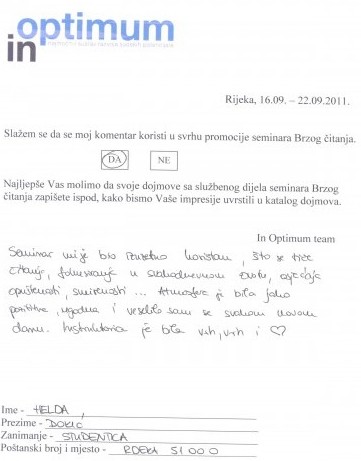 in optimum
Rijeka, 16.09. – 22.09.2011.
Slažem se da se moj komentar koristi u svrhu promocije seminara Brzog čitanja.
DA NE
Najljepše Vas molimo da svoje dojmove sa službenog dijela seminara Brzog
čitanja zapišete ispod, kako bismo Vaše impresije uvrstili u katalog dojmova.
In Optimum team
Seminar mi je bio izuzetno koristan, što se tiče
čitanja, fokusiranja u svakodnevnom životu, osjećaja
opuštenosti, smirenosti ... Atmosfera je bila jako
pozitivna, ugodna i veselila sam se svakom novom
danu. Instruktorica je bila vrh, vrh i ♡
Ime - HELDA
Prezime - DOKIĆ
Zanimanje - STUDENTICA
Poštanski broj i mjesto - RIJEKA 51000